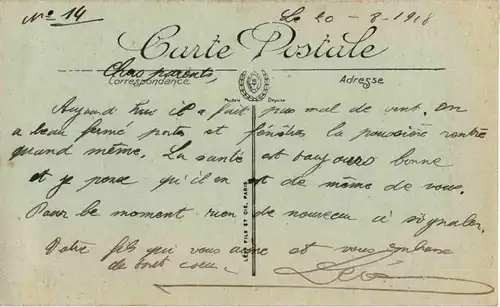 N° 14
Le 20-8-1918
Carte Postale
Chers parents,
Correspondance
Adresse
Aujourd'hui il a fait pas mal de vent. On
a beau fermé portes et fénêtres la poussière rentre
quand même. La santé est toujours bonne
et je pense qu'il en est de même de vous.
Pour be moment rien de nouveau à signaler.
Votre fils qui vous aime et vous embrasse
de tout coeur.
Léo
LÉVY FILS ET CIE, PARIS